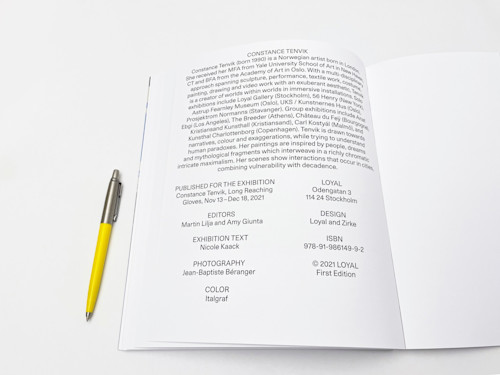 CONSTANCE TENVIK
Constance Tenvik (born 1990) is a Norwegian artist born in London.
She received her MFA from Yale University School of Art in New Haven,
CT and BFA from the Academy of Art in Oslo. With a multi-disciplinary
approach spanning sculpture, performance, textile work, costume,
painting, drawing and video work with an exuberant aesthetic, Tenvik
is a creator of worlds within worlds in immersive installations. Solo
exhibitions include Loyal Gallery (Stockholm), 56 Henry (New York),
Astrup Fearnley Museum (Oslo), UKS / Kunstnernes Hus (Oslo),
Prosjektrom Normanns (Stavanger). Group exhibitions include Anat
Ebgi (Los Angeles), The Breeder (Athens), Château du Feÿ (Bourgogne),
Kristiansand Kunsthall (Kristiansand), Carl Kostyál (Malmö), and
Kunsthal Charlottenborg (Copenhagen). Tenvik is drawn towards
narratives, colour and exaggerations, while trying to understand
human paradoxes. Her paintings are inspired by people, dreams
and mythological fragments which interweave in a richly chromatic
intricate maximalism. Her scenes show interactions that occur in cities,
combining vulnerability with decadence.
PUBLISHED FOR THE EXHIBITION
Constance Tenvik, Long Reaching
Gloves, Nov 13 – Dec 18, 2021
EDITORS
Martin Lilja and Amy Giunta
EXHIBITION TEXT
Nicole Kaack
PHOTOGRAPHY
Jean-Baptiste Béranger
COLOR
Italgraf
LOYAL
Odengatan 3
114 24 Stockholm
DESIGN
Loyal and Zirke
ISBN
978-91-986149-9-2
© 2021 LOYAL
First Edition